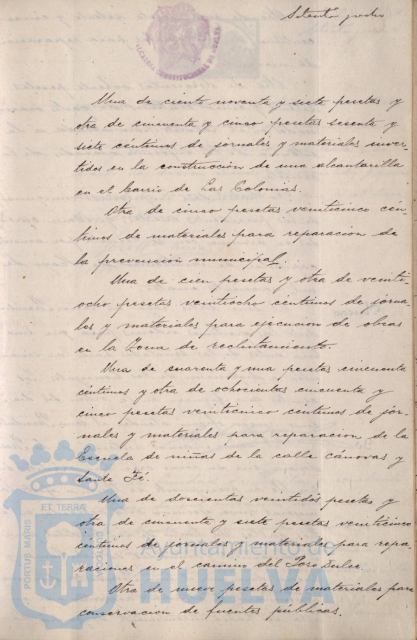 Setenta y
ALCALDIA CONSTITUCIONAL DE HUELVA
Una de ciento noventa y siete pesetas y
otra de cincuenta y cinco pesetas sesenta y
siete céntimos de jornales y materiales inver-
tidos en la construcción de una alcantarilla
en el barrio de Las Colonias.
Otra de cinco pesetas veinticinco cén-
timos de materiales para reparación de
la prevención municipal.
Una de cien pesetas y otra de veinti-
ocho pesetas veintiocho céntimos de jorna-
les y materiales para ejecución de obras
en la Zona de reclutamiento.
Una de cuarenta y una pesetas cincuenta
céntimos y otra de ochocientas cincuenta y
cinco pesetas veinticinco céntimos de jor-
nales y materiales para reparación de la
Escuela de niñas de la calle Cánovas y
Santa Fé.
Una de doscientas veintidos pesetas y
otra de cincuenta y siete pesetas veinticinco
céntimos de jornales y materiales para repa-
raciones en el camino del Poso Dulce.
Otra de nueve pesetas de materiales para
conservación de fuentes públicas.
PORTUS MARIS
ET TERRÆ
Ayuntamiento de
HUELVA